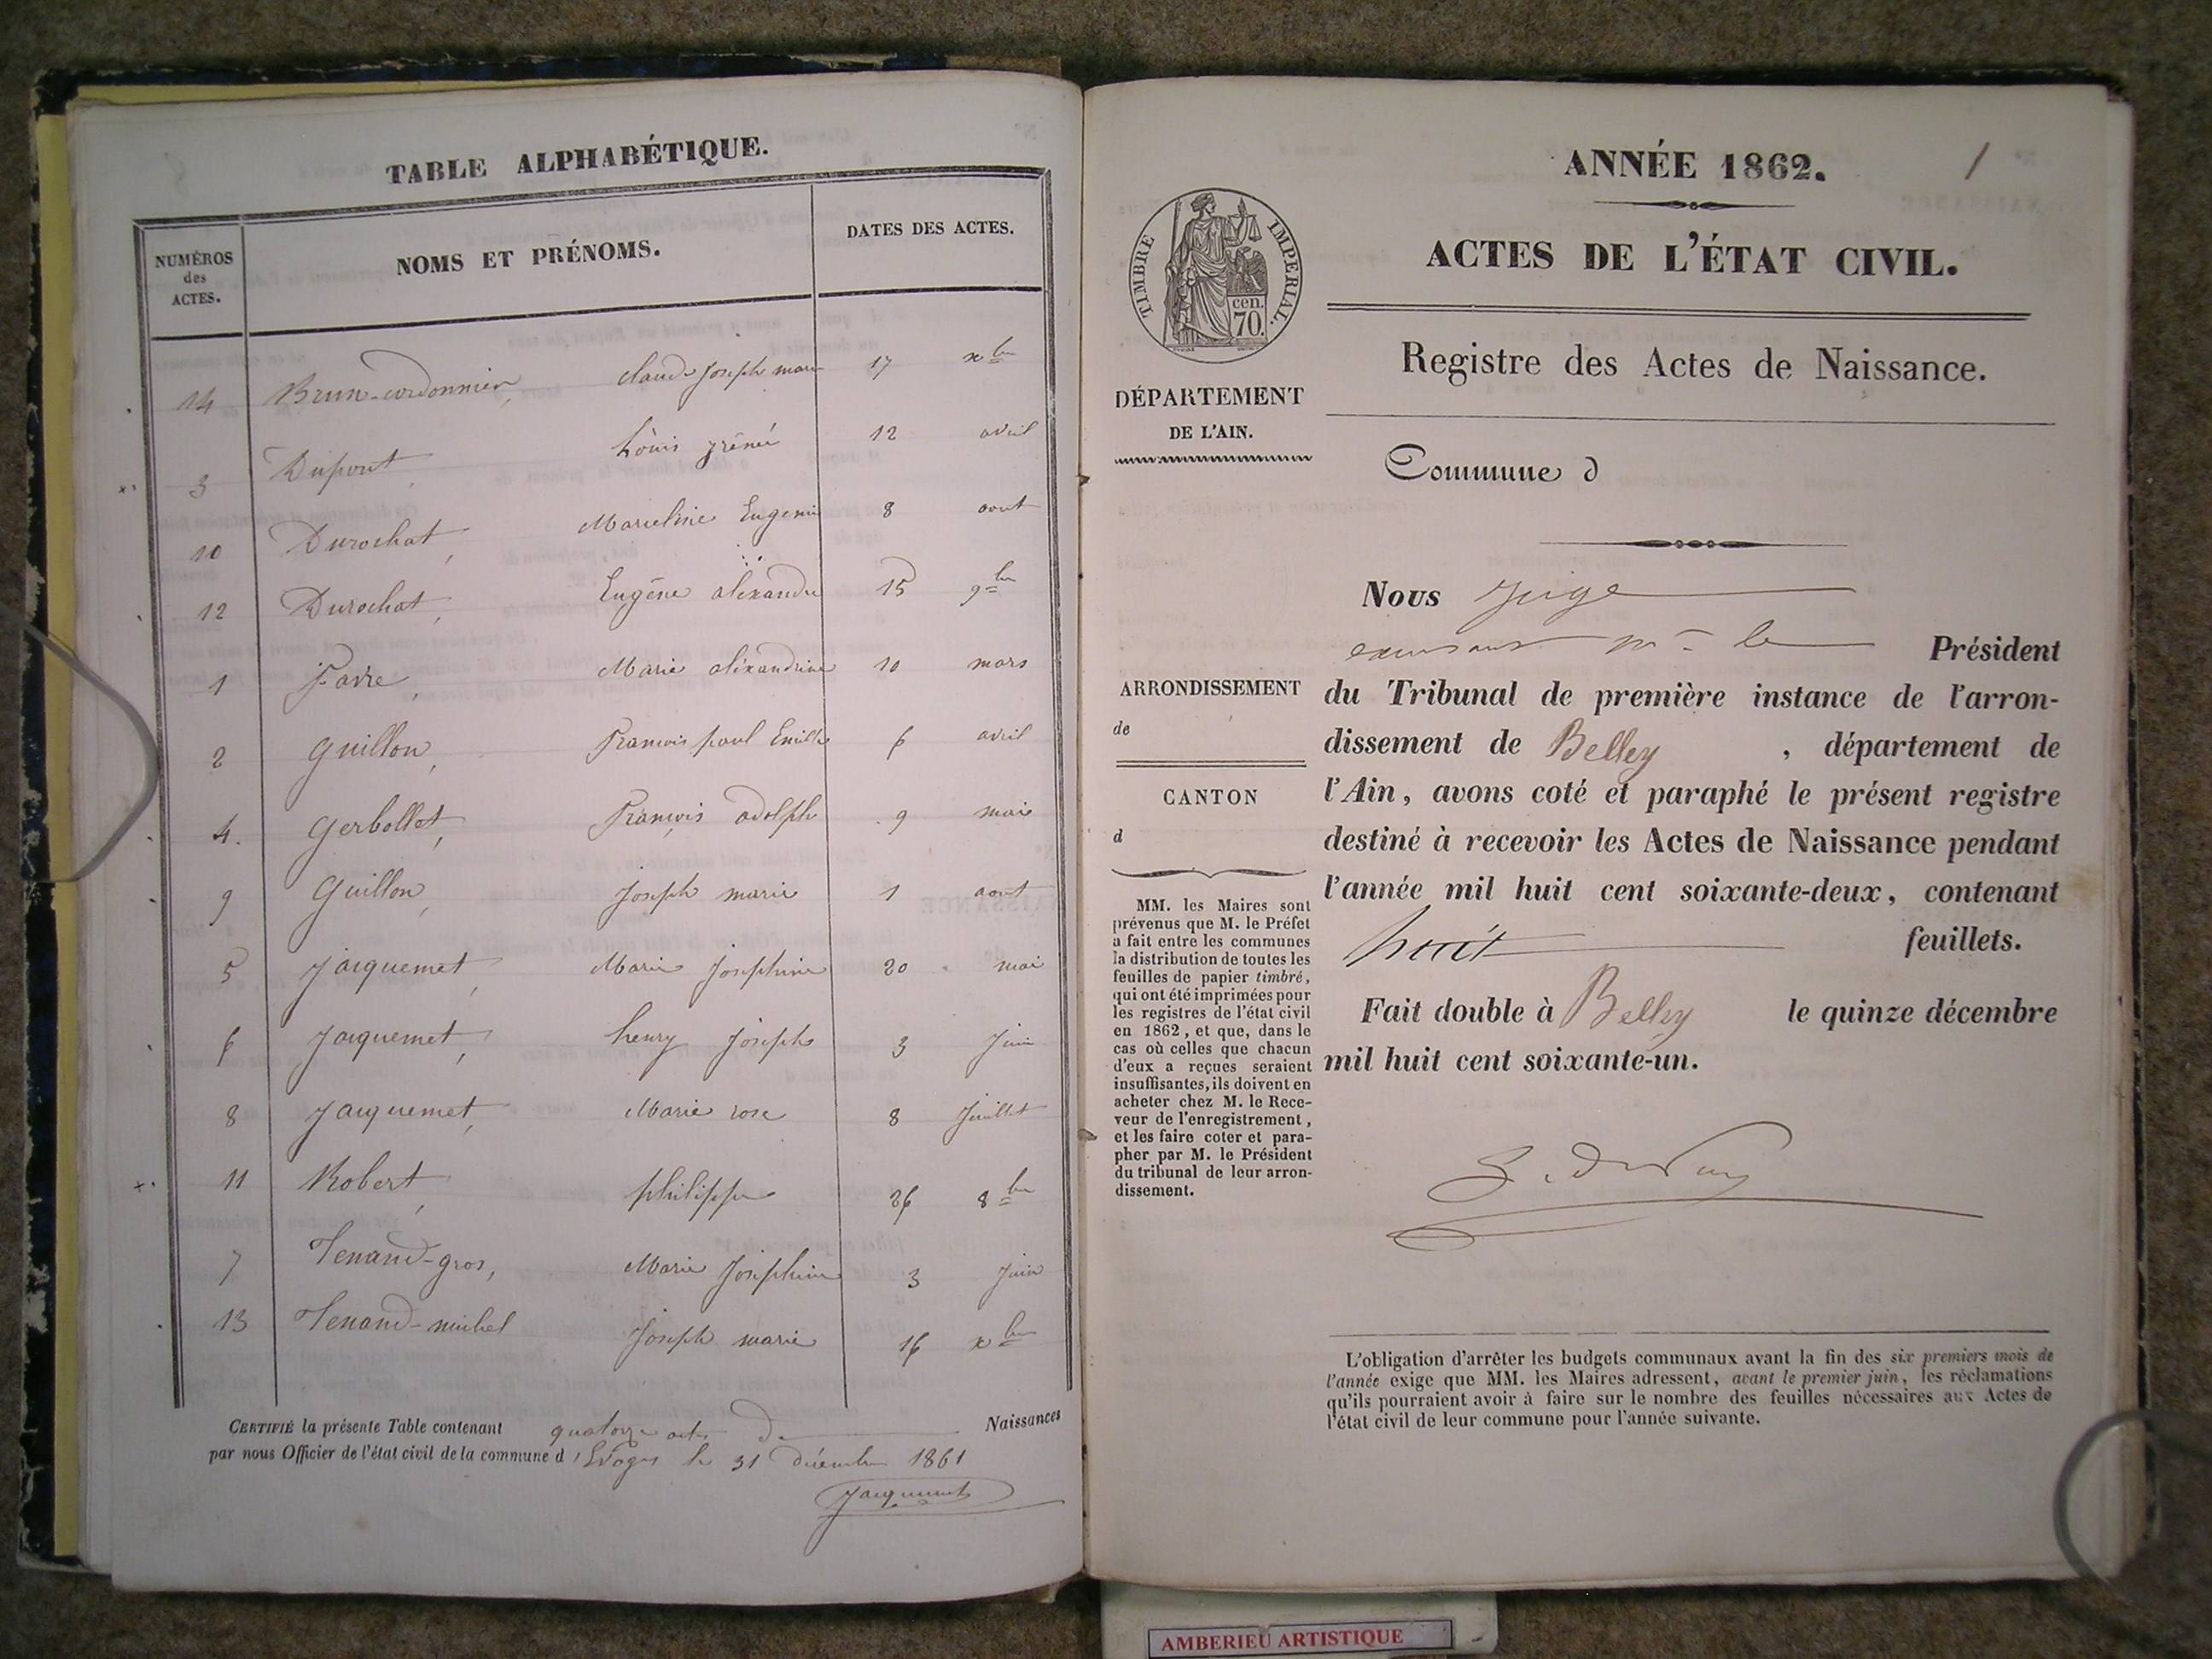 TABLE ALPHABÉTIQUE.
NUMÉROS
des
ACTES.
NOMS ET PRÉNOMS.
DATES DES ACTES.
14 Brun-cordonnier, claude Joseph marie 17 xbre
3 Dupont, Louis irénée 12 avril
10 Durochat, Marceline Eugenie 8 aout
12 Durochat, Eugène aléxandre 15 9bre
1 Favre, Marie aléxandrine 10 mars
2 Guillon, François paul Emille 6 avril
4. Gerbollet, François adolphe 9 mai
9 Guillon, Joseph marie 1 aout
5 Jacquemet, Marie Joséphine 20 mai
6 Jacquemet, henry Joseph 3 Juin
8 Jacquemet, Marie rose 8 Juillet
11 Robert, philippe 26 8bre
7 Tenand-gros, Marie Joséphine 3 Juin
13 Tenand-michel Joseph marie 16 xbre
CERTIFIÉ la présente Table contenant quatorze actes de Naissances
par nous Officier de l'état civil de la commune d'Evoges le 31 décembre 1861
Jacquemet
1
ANNÉE 1862.
ACTES DE L'ÉTAT CIVIL.
Registre des Actes de Naissance.
TIMBRE IMPERIAL.
cen.
70.
DÉPARTEMENT
DE L'AIN.
Commune d
ARRONDISSEMENT
de
CANTON
d
MM. les Maires sont
prévenus que M. le Préfet
a fait entre les communes
la distribution de toutes les
feuilles de papier timbré,
qui ont été imprimées pour
les registres de l'état civil
en 1862, et que, dans le
cas où celles que chacun
d'eux a reçues seraient
insuffisantes, ils doivent en
acheter chez M. le Rece-
veur de l'enregistrement,
et les faire coter et para-
pher par M. le Président
du tribunal de leur arron-
dissement.
Nous Juge
le Président
du Tribunal de première instance de l'arron-
dissement de Belley, département de
l'Ain, avons coté et paraphé le présent registre
destiné à recevoir les Actes de Naissance pendant
l'année mil huit cent soixante-deux, contenant
huit feuillets.
Fait double à Belley le quinze décembre
mil huit cent soixante-un.
L'obligation d'arrêter les budgets communaux avant la fin des six premiers mois de
l'année exige que MM. les Maires adressent, avant le premier juin, les réclamations
qu'ils pourraient avoir à faire sur le nombre des feuilles nécessaires aux Actes de
l'état civil de leur commune pour l'année suivante.
AMBERIEU ARTISTIQUE